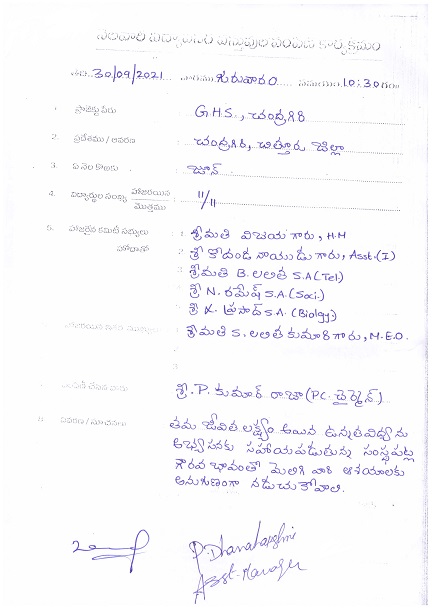 నెలవారి విద్యోపకరణ వస్తువుల పంపిణి కార్యక్రమం
తేది: 30/09/2021 వారము గురువారం సమయం 10:30గం
1. ప్రాజెక్టు పేరు G.H.S., చంద్రగిరి
2. ప్రదేశము / ఆవరణ చంద్రగిరి, చిత్తూరు జిల్లా
3. ఏ నెల కొఱకు జూన్
4. విద్యార్థుల సంఖ్య హాజరయిన / మొత్తము 11/11
5. హాజరైన కమిటీ సభ్యులు 1. శ్రీమతి విజయ గారు, H.M
హోదాతో 2. శ్రీ కోదండ నాయుడు గారు, Asst.(I)
3 శ్రీమతి B. లలిత S.A(Tel)
4 శ్రీ N. రమేష్ S.A.(Soci.)
5 శ్రీ K. ప్రసాద్ S.A.(Biolgy)
శ్రీమతి S. లలిత కుమారి గారు, M.E.O.
3
శ్రీ. P. కుమార్ రాజా (PC. చైర్మెన్)
వివరణ / సూచనలు తమ జీవిత లక్ష్యం అయిన ఉన్నత విద్యను
అభ్యసనకు సహాయపడుతున్న సంస్థపట్ల
గౌరవ భావంతో మెలిగి వారి ఆశయాలకు
అనుగుణంగా నడుచుకోవాలి.
P. Dhanalakshmi
Asst. Manager